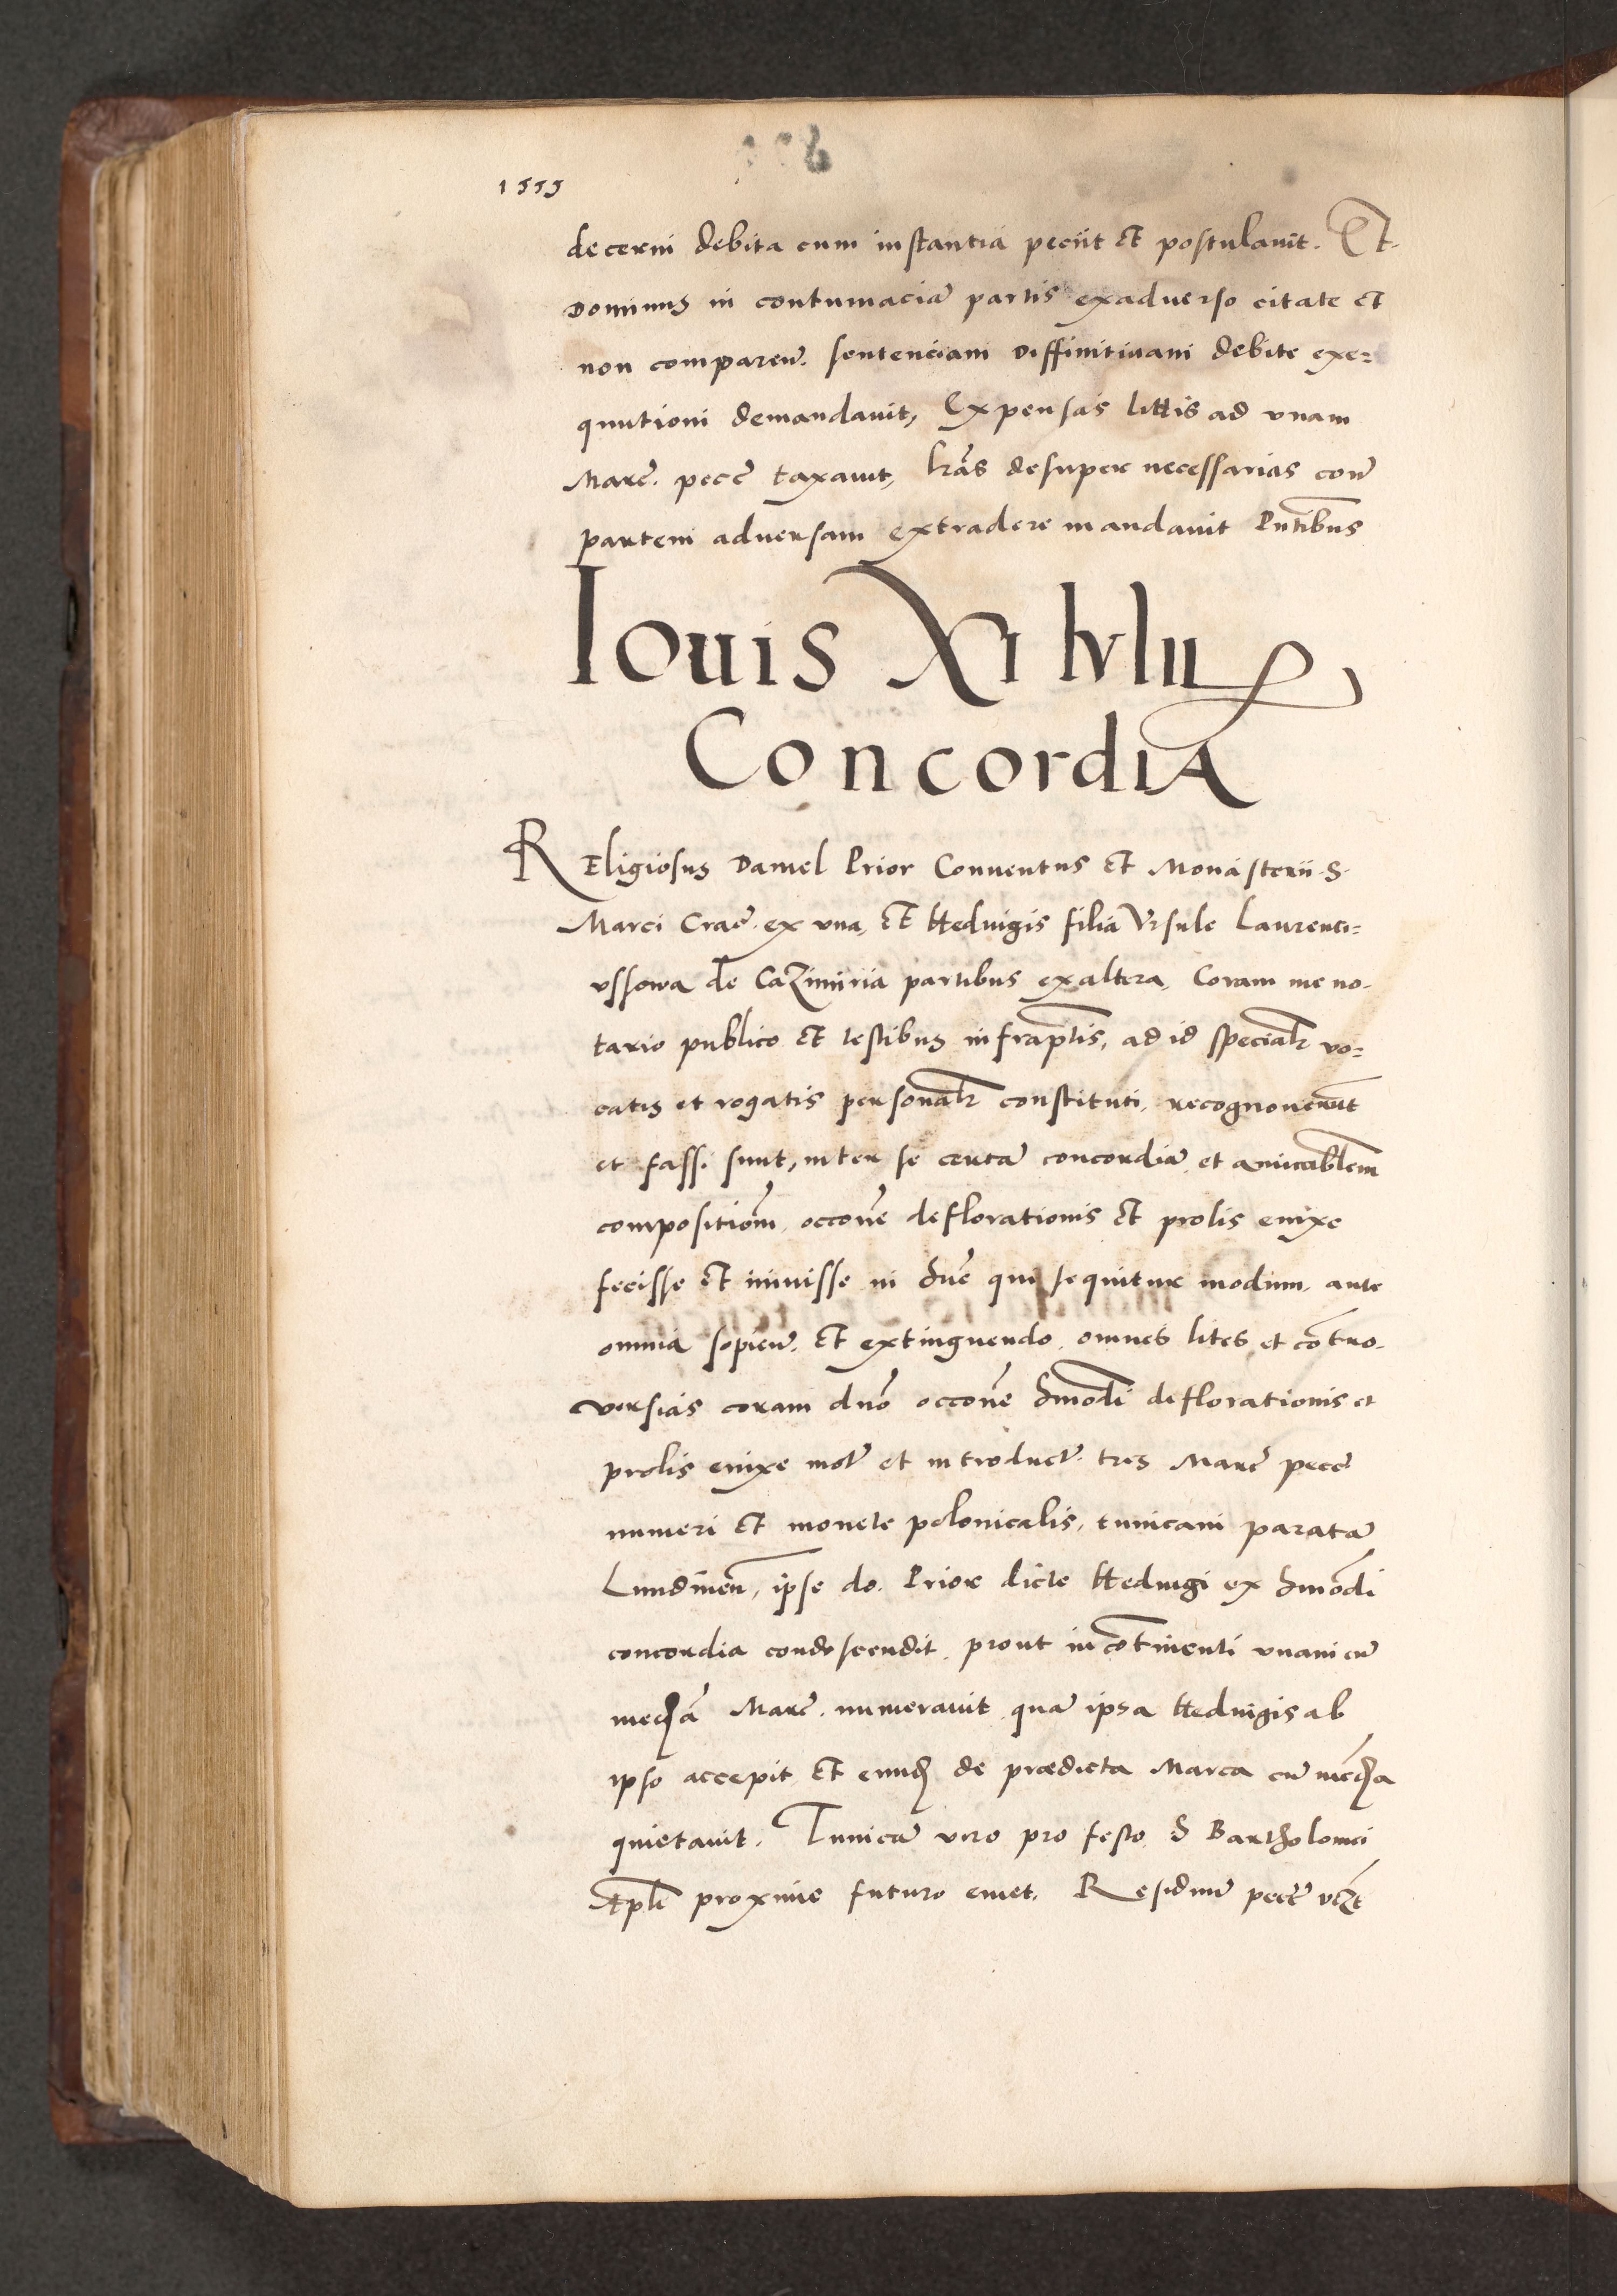 1555
decerni debita cum instantia peciit et postulauit. Et
Dominus in contumaciã partis exaduerso citate et
non comparen̄. sentenciam Diffinitiuam debite exe=
quutioni demandauit, Expensas littis ad vnam
Marc̄. pecc̄ taxauit, lr̃as desuper necessarias con̄
partem aduersam extradere mandauit Pn̄tibus
Iouis XI Iulii
Concordia
REligiosus Daniel Prior Conuentus et Monasterii S.
Marci Crac̄. ex vna, et Heduigis filia Vrsule Laurenci=
ussowa de Cazimiria partibus ex altera, Coram me no-
tario publico et testibus infrap̄tis, ad id speciālr vo=
catis et rogatis personālr constituti, recognouerūt
et fassi sunt, inter se certã concordiã et amicab̄lem
compositiōm, occōne deflorationis et prolis enixe
fecisse et iniuisse in hūc qui sequitur modum, ante
omnia sopien̄. et extinguendo, omnes lites et cōtro-
versias coram dn̄o occōne hmōdi deflorationis et
prolis enixe mot̄ et introduct̄. tres Marc̄ pecc̄
numeri et monete polonicalis, tunicam paratã
Lundinen̄, ipse do. Prior dicte Heduigi ex hmōdi
concordia condescendit, prout in cōtinenti vnam cū
med̄ia Marc̄. numerauit quã ipsa Heduigis ab
ipso accepit et eund̄ de prædicta Marca cū med̄ia
quietauit. Tunicã vero pro festo S Bartholomei
Ap̄li proxime futuro emet, Residuū pecc̄ vĩzt